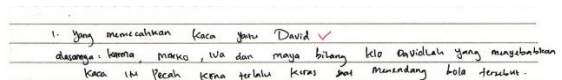 1. Yang memecahkan kaca yaitu David
alasannya : karena, marko, iva dan maya bilang klo DavidLah yang menyebabkan
kaca ini Pecah kerna terlalu keras saat menendang bola tersebut.